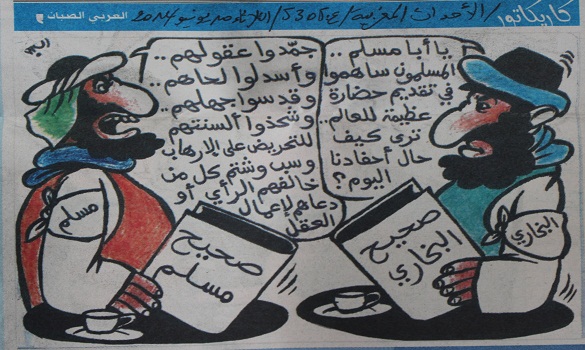 كاريكاتور
الأحداث المغربية / 5305 / الثلاثاء يونيو 2014
العربي الصبان
يا أبا مسلم ..
المسلمون ساهموا
في تقديم حضارة
عظيمة للعالم..
ترى كيف
حال أحفادنا
اليوم؟
جمّدوا عقولهم..
وأسدلوا لحاهم..
وقدسوا جهلهم..
وشحذوا ألسنتهم
للتحريض على الإرهاب
وسب وشتم كل من
خالفهم الرأي أو
دعاهم لإعمال
العقل
البخاري
مسلم
صحيح
البخاري
صحيح
مسلم